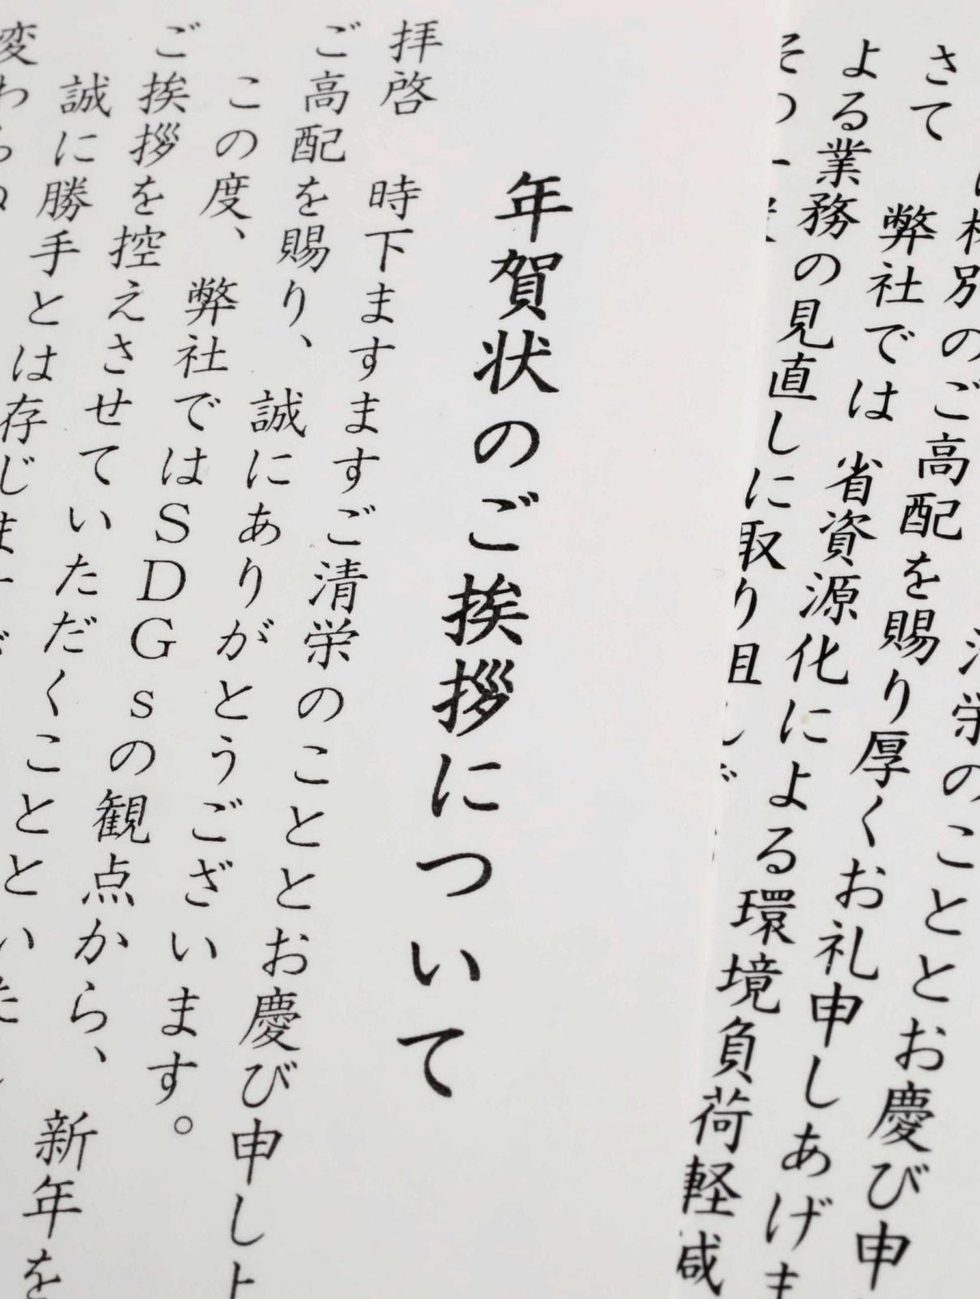 のご高配を賜り厚くお礼申しあげま
さて 弊社では 省資源化による環境負荷軽減
よる業務の見直しに取り
年賀状のご挨拶について
拝啓 時下ますますご清栄のこととお慶び申し上
ご高配を賜り、 誠にありがとうございます。
この度、 弊社ではSDGsの観点から、 新年を
ご挨拶を控えさせていただくことといた
誠に勝手とは存じます
変わらぬ